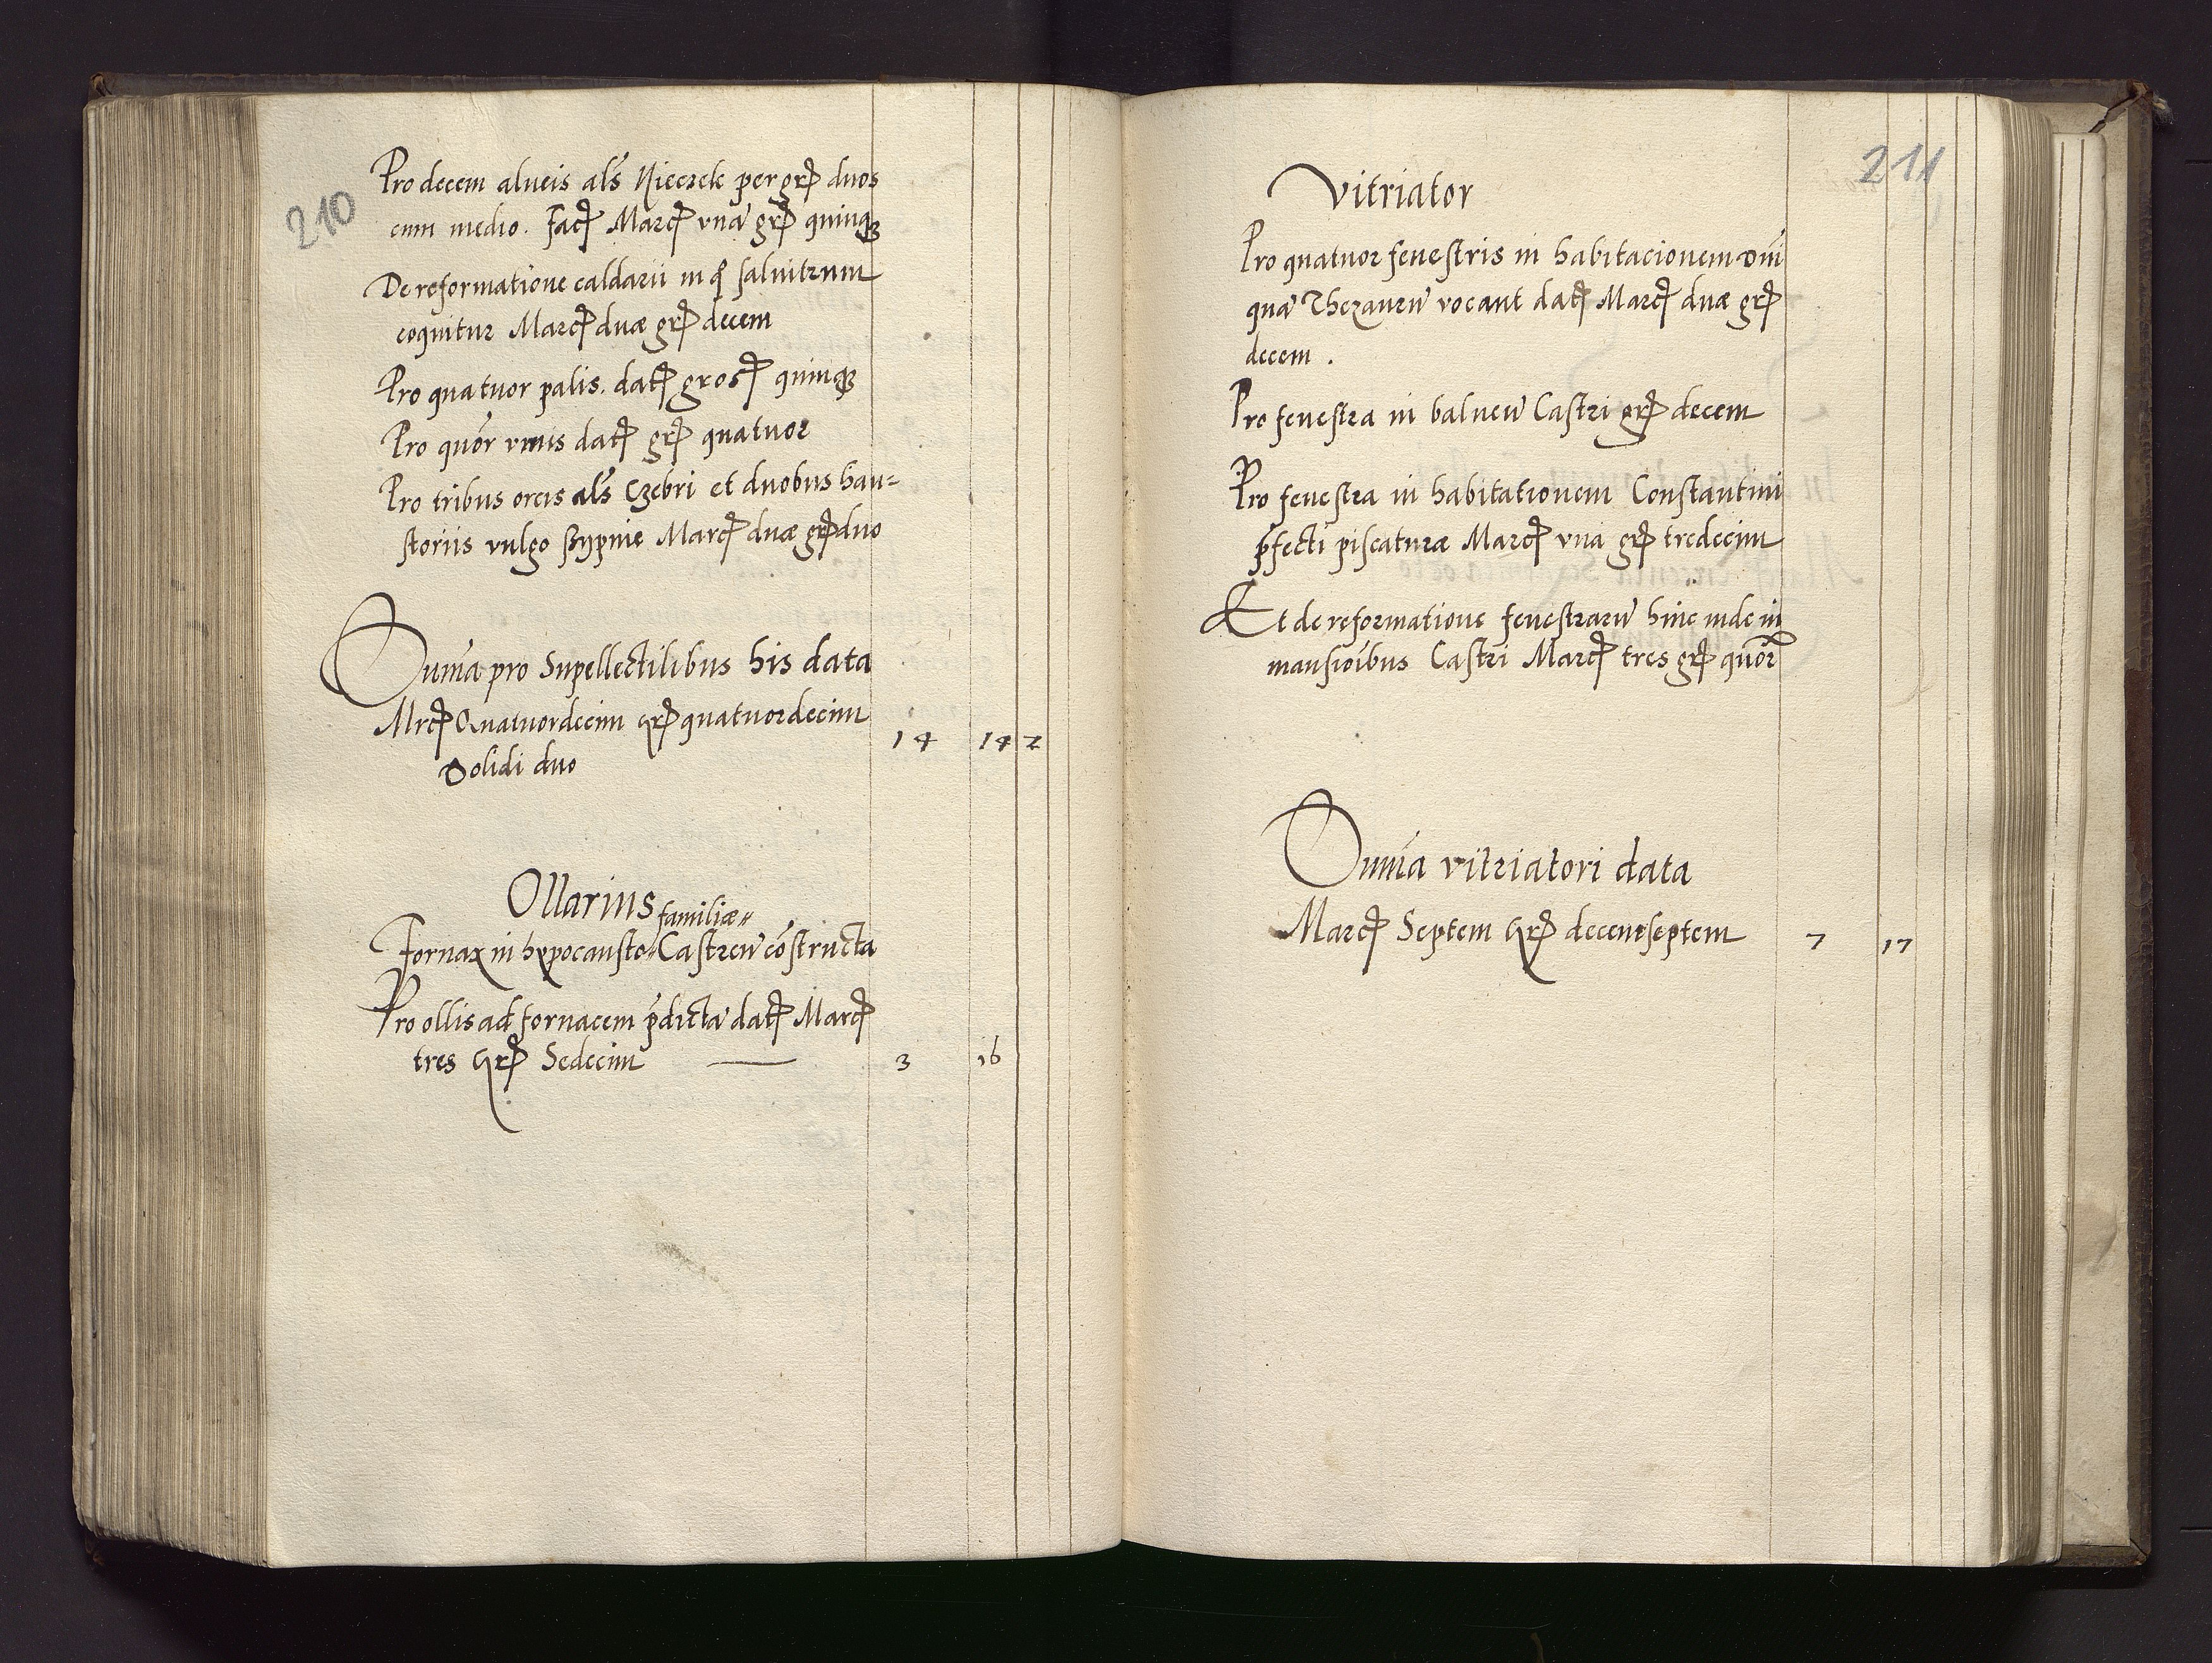 210
Pro decem alueis als̃ Nieczek per grꝭ duos
cum medio. Facꝭ Marcꝭ vnã grꝭ quinqꝫ
De reformatione caldarii in qͦ salnitrum
coquitur Marcꝭ duæ grꝭ decem
Pro quatuor palis. datꝭ grosꝭ quinqꝫ
Pro quõr vrnis datꝭ grꝭ quatuor
Pro tribus orcis als̃ Czebri et duobus hau=
storiis vulgo Szypnie Marcꝭ duæ grꝭ duo
Sum̃a pro Supellectilibus his data
Mrcꝭ Quatuordecim Grꝭ quatuordecim 14 14 2
Solidi duo
Ollarius
familiæ〃
Fornax in hypocausto〃 Castreñ cõstructa
Pro ollis ad fornacem p̃dictã datꝭ Marcꝭ
tres Grꝭ Sedecim — 3 16
211
Vitriator
Pro quatuor fenestris in habitacionem Dñi
quã Thezaurũ vocant datꝭ Marcꝭ duæ grꝭ
decem .
Pro fenestra in balneũ Castri grꝭ decem
Pro fenestra in habitationem Constantini
p̃fecti piscaturæ Marcꝭ vna grꝭ tredecim
Et de reformatione fenestrarũ hinc inde in
mansiõibus Castri Marcꝭ tres grꝭ quõr
Sum̃a vitriatori data
Marcꝭ Septem Grꝭ decemseptem 7 17